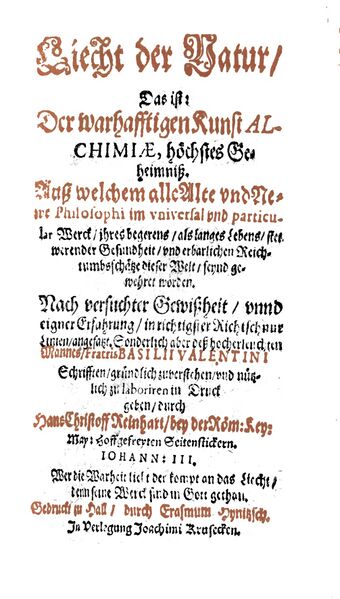 Liecht der Natur/
Das ist:
Der warhafftigen Kunst AL-
CHIMIÆ, höchstes Ge-
heimniß.
Auß welchem alle Alte vnd Ne-
we Philosophi im vniversal vnd particu-
lar Werck/ jhres begerens/ als langes Leben/ stets
werender Gesundheit/ vnd erbarlichen Reich-
tumbsschätze dieser Welt/ seynd ge-
wehret worden.
Nach versuchter Gewißheit/ vnnd
eigner Erfahrung/ in richtigster Richtschnur
Linien/ angesetzt. Sonderlich aber deß hocherleuchten
Mannes/ Fratris BASILII VALENTINI
Schrifften/ gründlich zuverstehen/ vnd nütz-
lich zu laboriren in Druck
geben/ durch
Hans Christoff Reinhart/ bey der Röm: Key:
May: Hoffgefreyten Seitenstickern.
IOHANN: III.
Wer die Warheit liebt der kompt an das Liecht/
denn seine Werck sind in Gott gethan.
Gedruckt zu Hall/ durch Erasmum Hynitzsch.
In Verlegung Joachimi Krusecken.